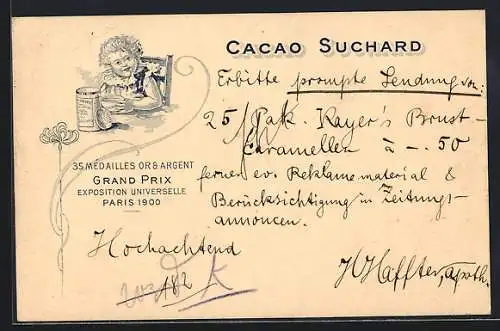 CACAO SUCHARD
Erbitte prompte Sendung von:
25/1 Pak. Kayer's Brust-
Caramellen à -.50
ferner ev. Reklamematerial &
Berücksichtigung in Zeitungs-
annoncen.
Hochachtend
H Haffter, Apoth.
35 MÉDAILLES OR & ARGENT
GRAND PRIX
EXPOSITION UNIVERSELLE
PARIS 1900
182
K